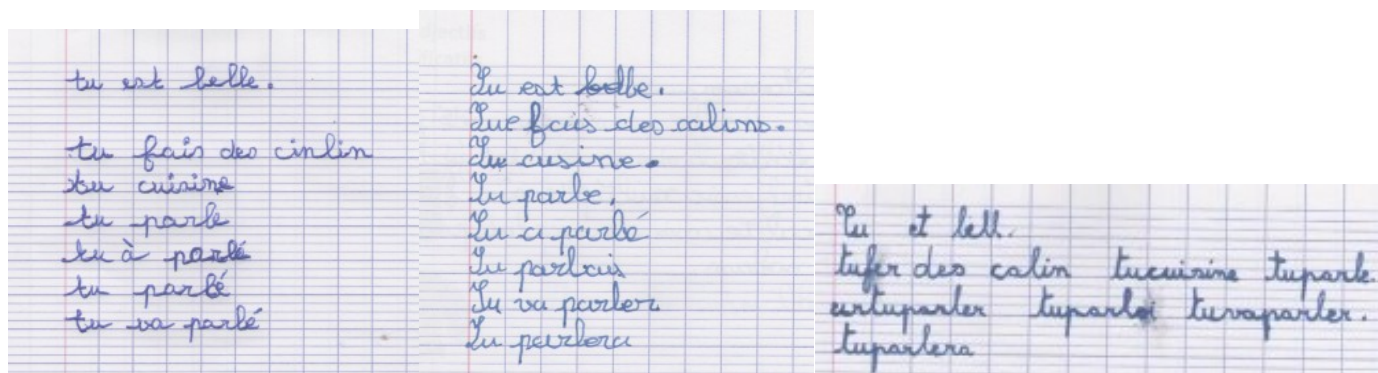 tu est belle.
tu fais des cinlin
tu cuisine
tu parle
tu à parlé
tu parlé
tu va parlé
Tu est belle.
Tue fais des calins.
Tu cusine.
Tu parle.
Tu a parlé
Tu parlais
Tu va parler
Tu parlera
Tu et bell.
tufer des calin tucuisine tuparle.
tuparler tuparlai tuvaparler.
tuparlera